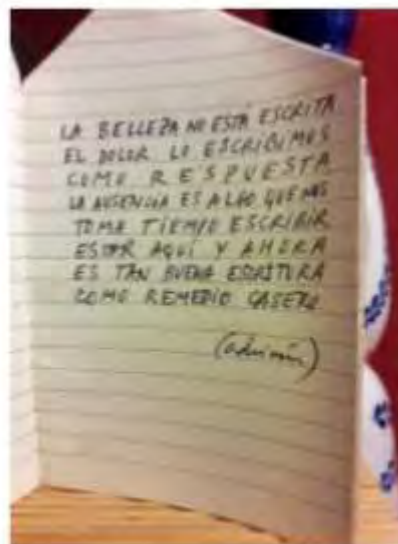 LA BELLEZA NO ESTÁ ESCRITA
EL DOLOR LO ESCRIBIMOS
COMO RESPUESTA
LA AUSENCIA ES ALGO QUE NOS
TOMA TIEMPO ESCRIBIR
ESTAR AQUÍ Y AHORA
ES TAN BUENA ESCRITURA
COMO REMEDIO CASERO